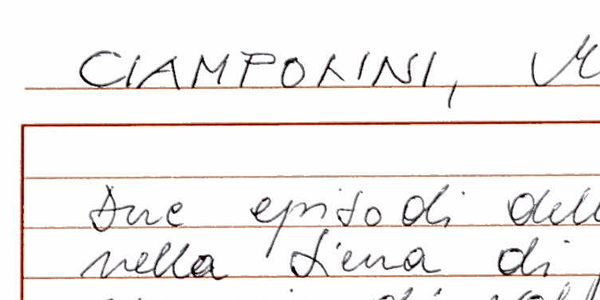 CIAMPOLINI,
Due episodi dell
nella Siena di
di